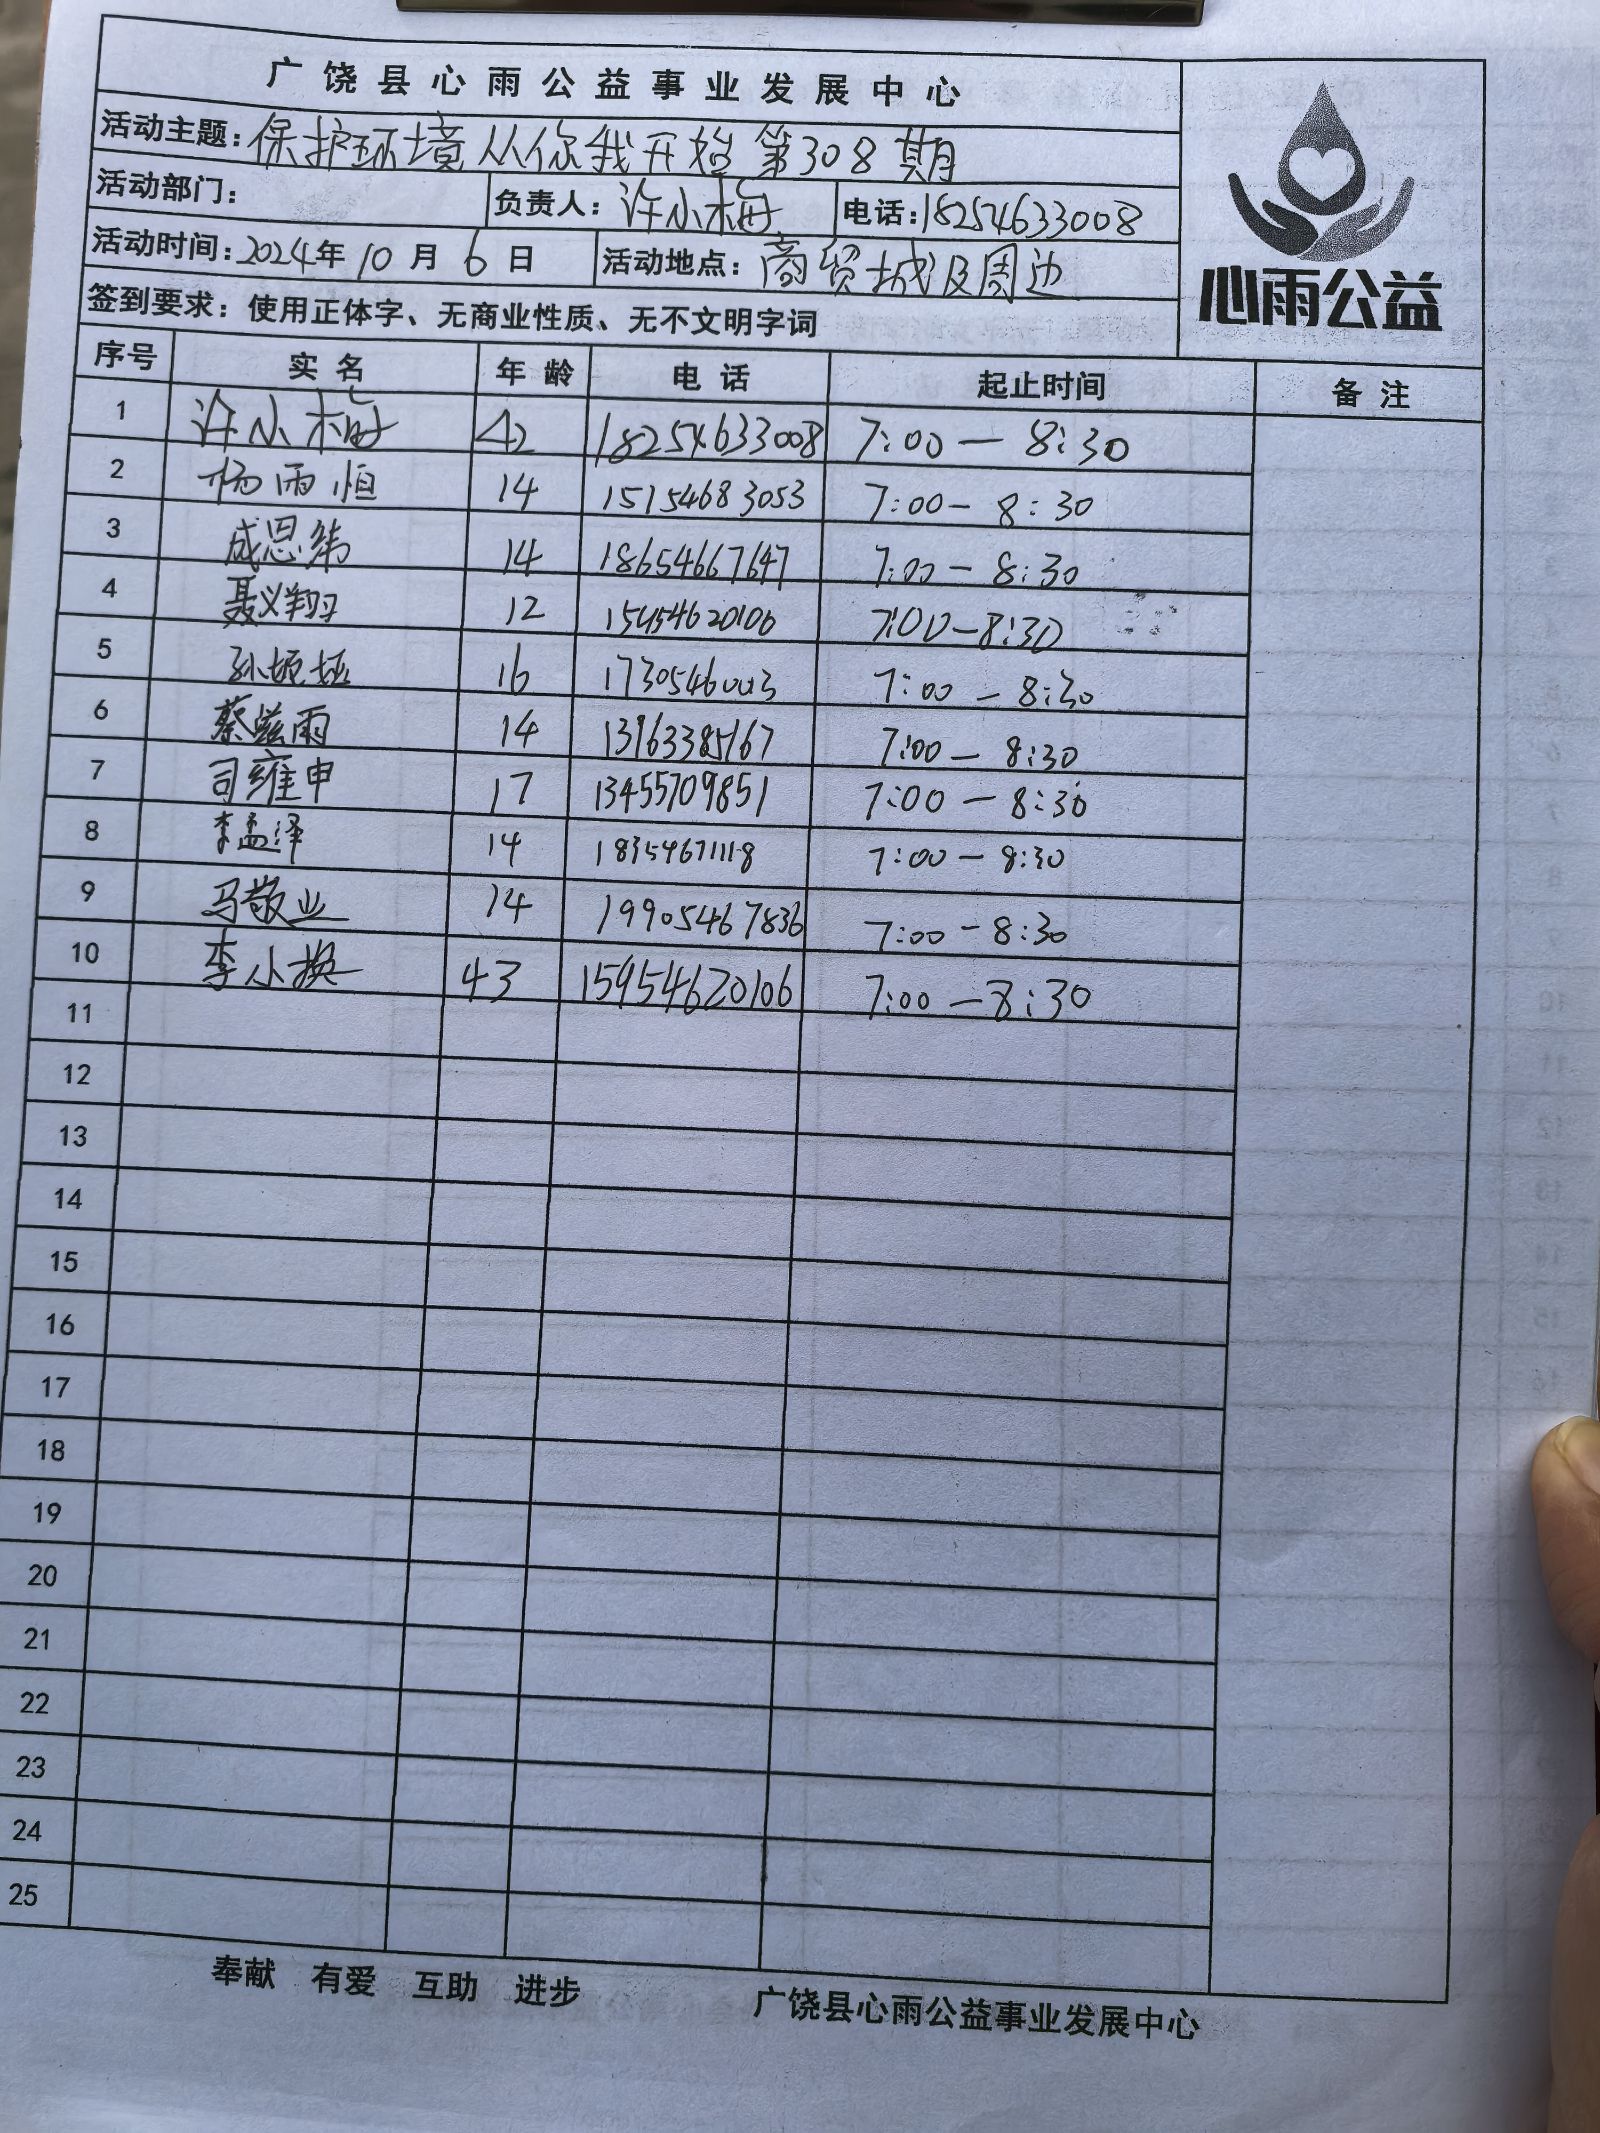 广饶县心雨公益事业发展中心
活动主题：保护环境从你我开始第308期
活动部门： 负责人：许小梅 电话：18254633008
活动时间：2024年10月6日 活动地点：商贸城及周边
签到要求：使用正体字、无商业性质、无不文明字词
心雨公益
序号 实名 年龄 电话 起止时间 备注
1 许小梅 42 18254633008 7:00—8:30
2 杨雨恒 14 15154683053 7:00-8:30
3 成思纬 14 18654667647 7:00-8:30
4 聂义翔 12 15954620106 7:00-8:30
5 16 7:00-8:30
6 蔡滋雨 14 13963385167 7:00-8:30
7 司雍申 17 13455709851 7:00-8:30
8 李孟泽 14 18354671118 7:00-8:30
9 马敬业 14 19905467836 7:00-8:30
10 李小换 43 15954620106 7:00-8:30
11
12
13
14
15
16
17
18
19
20
21
22
23
24
25
奉献 有爱 互助 进步 广饶县心雨公益事业发展中心